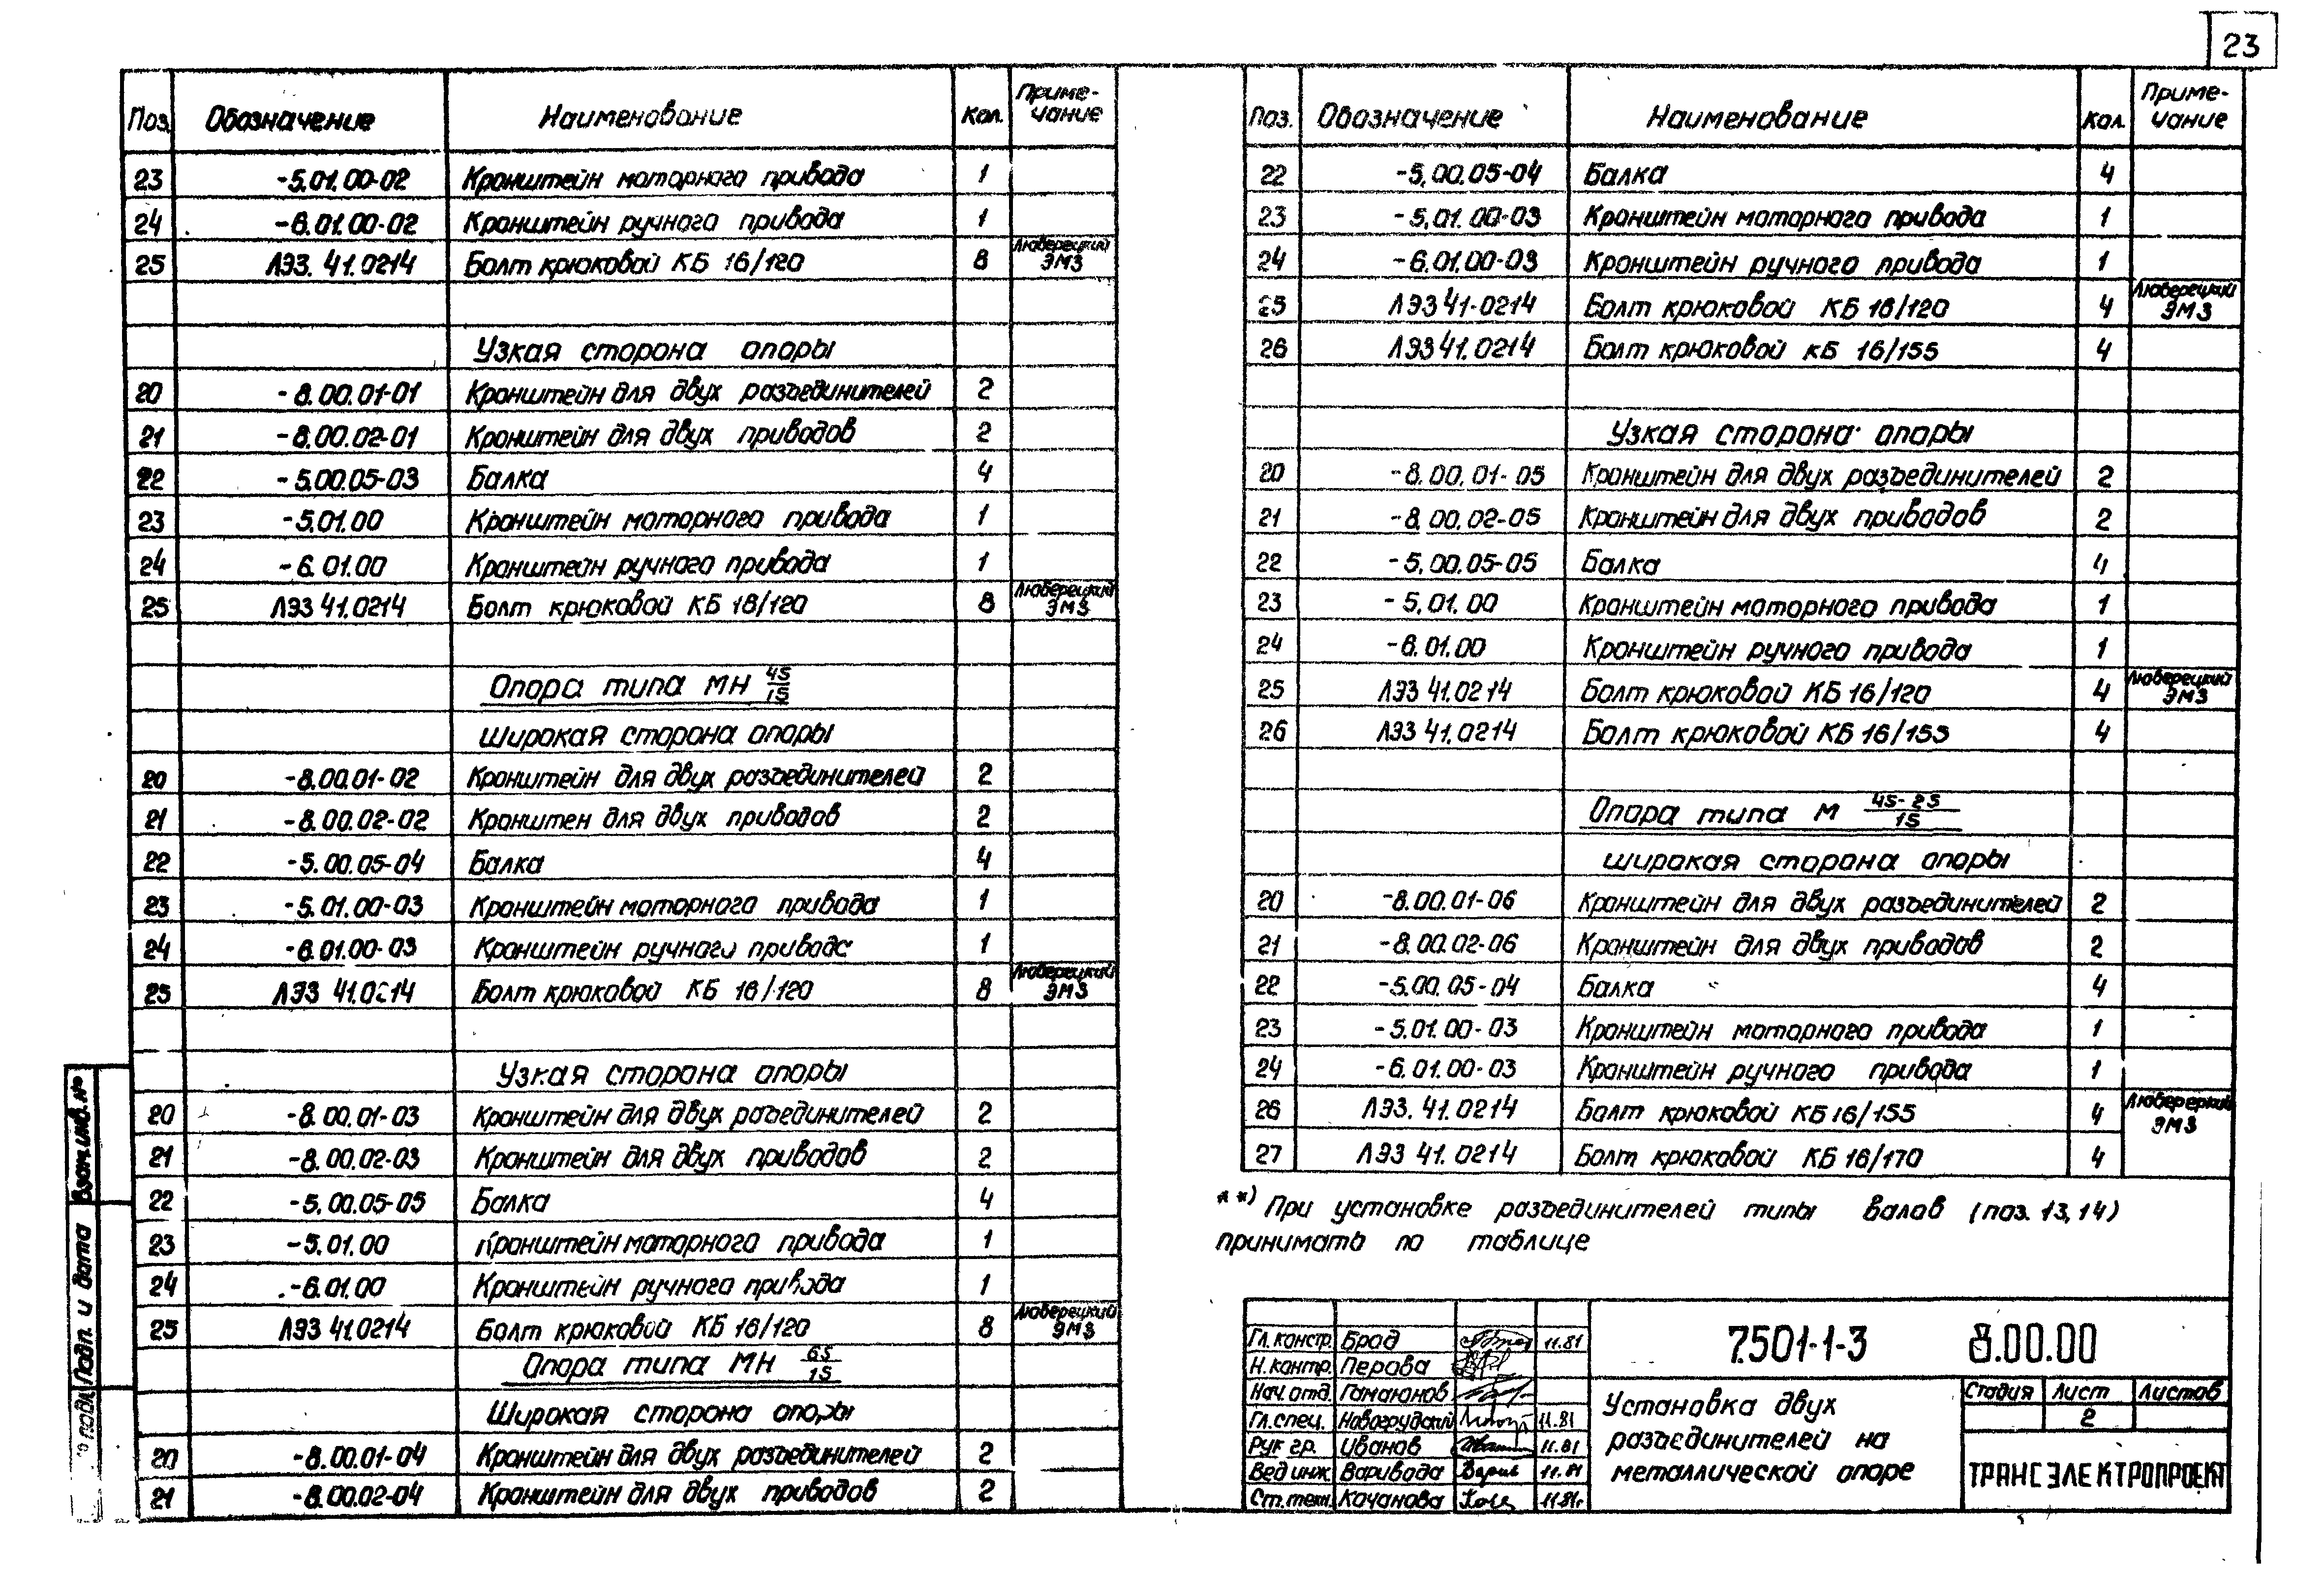 23
Поз. Обозначение Наименование Кол. Приме-
чание
23 -5.01.00-02 Кронштейн моторного привода 1
24 -6.01.00-02 Кронштейн ручного привода 1
25 ЛЭЗ. 41.0214 Болт крюковой КБ 16/120 8 Люберецкий
ЭМЗ
Узкая сторона опоры
20 -8.00.01-01 Кронштейн для двух разъединителей 2
21 -8.00.02-01 Кронштейн для двух приводов 2
22 -5.00.05-03 Балка 4
23 -5.01.00 Кронштейн моторного привода 1
24 -6.01.00 Кронштейн ручного привода 1
25 ЛЭЗ 41.0214 Болт крюковой КБ 16/120 8 Люберецкий
ЭМЗ
Опора типа МН 45/15
широкая сторона опоры
20 -8.00.01-02 Кронштейн для двух разъединителей 2
21 -8.00.02-02 Кронштен для двух приводов 2
22 -5.00.05-04 Балка 4
23 -5.01.00-03 Кронштейн моторного привода 1
24 -6.01.00-03 Кронштейн ручного привода 1
25 ЛЭЗ 41.0214 Болт крюковой КБ 16/120 8 Люберецкий
ЭМЗ
Узкая сторона опоры
20 -8.00.01-03 Кронштейн для двух разъединителей 2
21 -8.00.02-03 Кронштейн для двух приводов 2
22 -5.00.05-05 Балка 4
23 -5.01.00 Кронштейн моторного привода 1
24 -6.01.00 Кронштейн ручного привода 1
25 ЛЭЗ 41.0214 Болт крюковой КБ 16/120 8 Люберецкий
ЭМЗ
Опора типа МН 65/15
Широкая сторона опоры
20 -8.00.01-04 Кронштейн для двух разъединителей 2
21 -8.00.02-04 Кронштейн для двух приводов 2
Поз. Обозначение Наименование Кол. Приме-
чание
22 -5.00.05-04 Балка 4
23 -5.01.00-03 Кронштейн моторного привода 1
24 -6.01.00-03 Кронштейн ручного привода 1
25 ЛЭЗ 41-0214 Болт крюковой КБ 16/120 4 Люберецкий
ЭМЗ
26 ЛЭЗ 41.0214 Болт крюковой КБ 16/155 4
Узкая сторона опоры
20 -8.00.01-05 Кронштейн для двух разъединителей 2
21 -8.00.02-05 Кронштейн для двух приводов 2
22 -5.00.05-05 Балка 4
23 -5.01.00 Кронштейн моторного привода 1
24 -6.01.00 Кронштейн ручного привода 1
25 ЛЭЗ 41.0214 Болт крюковой КБ 16/120 4 Люберецкий
ЭМЗ
26 ЛЭЗ 41.0214 Болт крюковой КБ 16/155 4
Опора типа М 45-25/15
широкая сторона опоры
20 -8.00.01-06 Кронштейн для двух разъединителей 2
21 -8.00.02-06 Кронштейн для двух приводов 2
22 -5.00.05-04 Балка 4
23 -5.01.00-03 Кронштейн моторного привода 1
24 -6.01.00-03 Кронштейн ручного привода 1
26 ЛЭЗ. 41.0214 Болт крюковой КБ 16/155 4 Любереркий
ЭМЗ
27 ЛЭЗ 41.0214 Болт крюковой КБ 16/170 4
**) При установке разъединителей типы валов (поз. 13, 14)
принимать по таблице
Гл. констр. Брод 11.81
Н. контр. Перова
Нач. отд. Гамаюнов
Гл. спец. Новогрудский 11.81
Рук гр. Иванов 11.81
Вед инж Варивода 11.81
Ст. техн. Качанова 11.81г
7.501-1-3 8.00.00
Установка двух
разъединителей на
металлической опоре
Стадия Лист Листов
2
ТРАНСЭЛЕКТРОПРОЕКТ
Взам. инв. №
Подп. и дата
подл